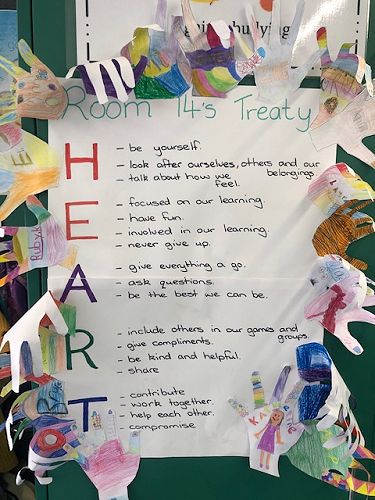 bullying
Room 14's Treaty
H
- be yourself.
- look after ourselves, others and our belongings.
- talk about how we feel.
E
- focused on our learning.
- have fun.
- involved in our learning.
- never give up.
A
- give everything a go.
- ask questions.
- be the best we can be.
R
- include others in our games and groups.
- give compliments.
- be kind and helpful.
- share
T
- contribute
- work together.
- help each other.
- compromise